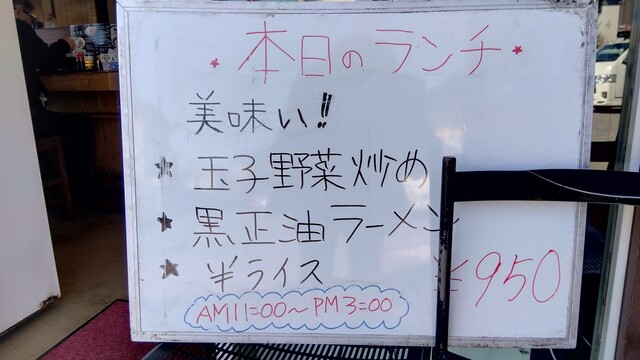 ★本日のランチ★
美味い!!
★ 玉子野菜炒め
★ 黒正油ラーメン
★ 半ライス
¥950
AM11=00~PM3=00